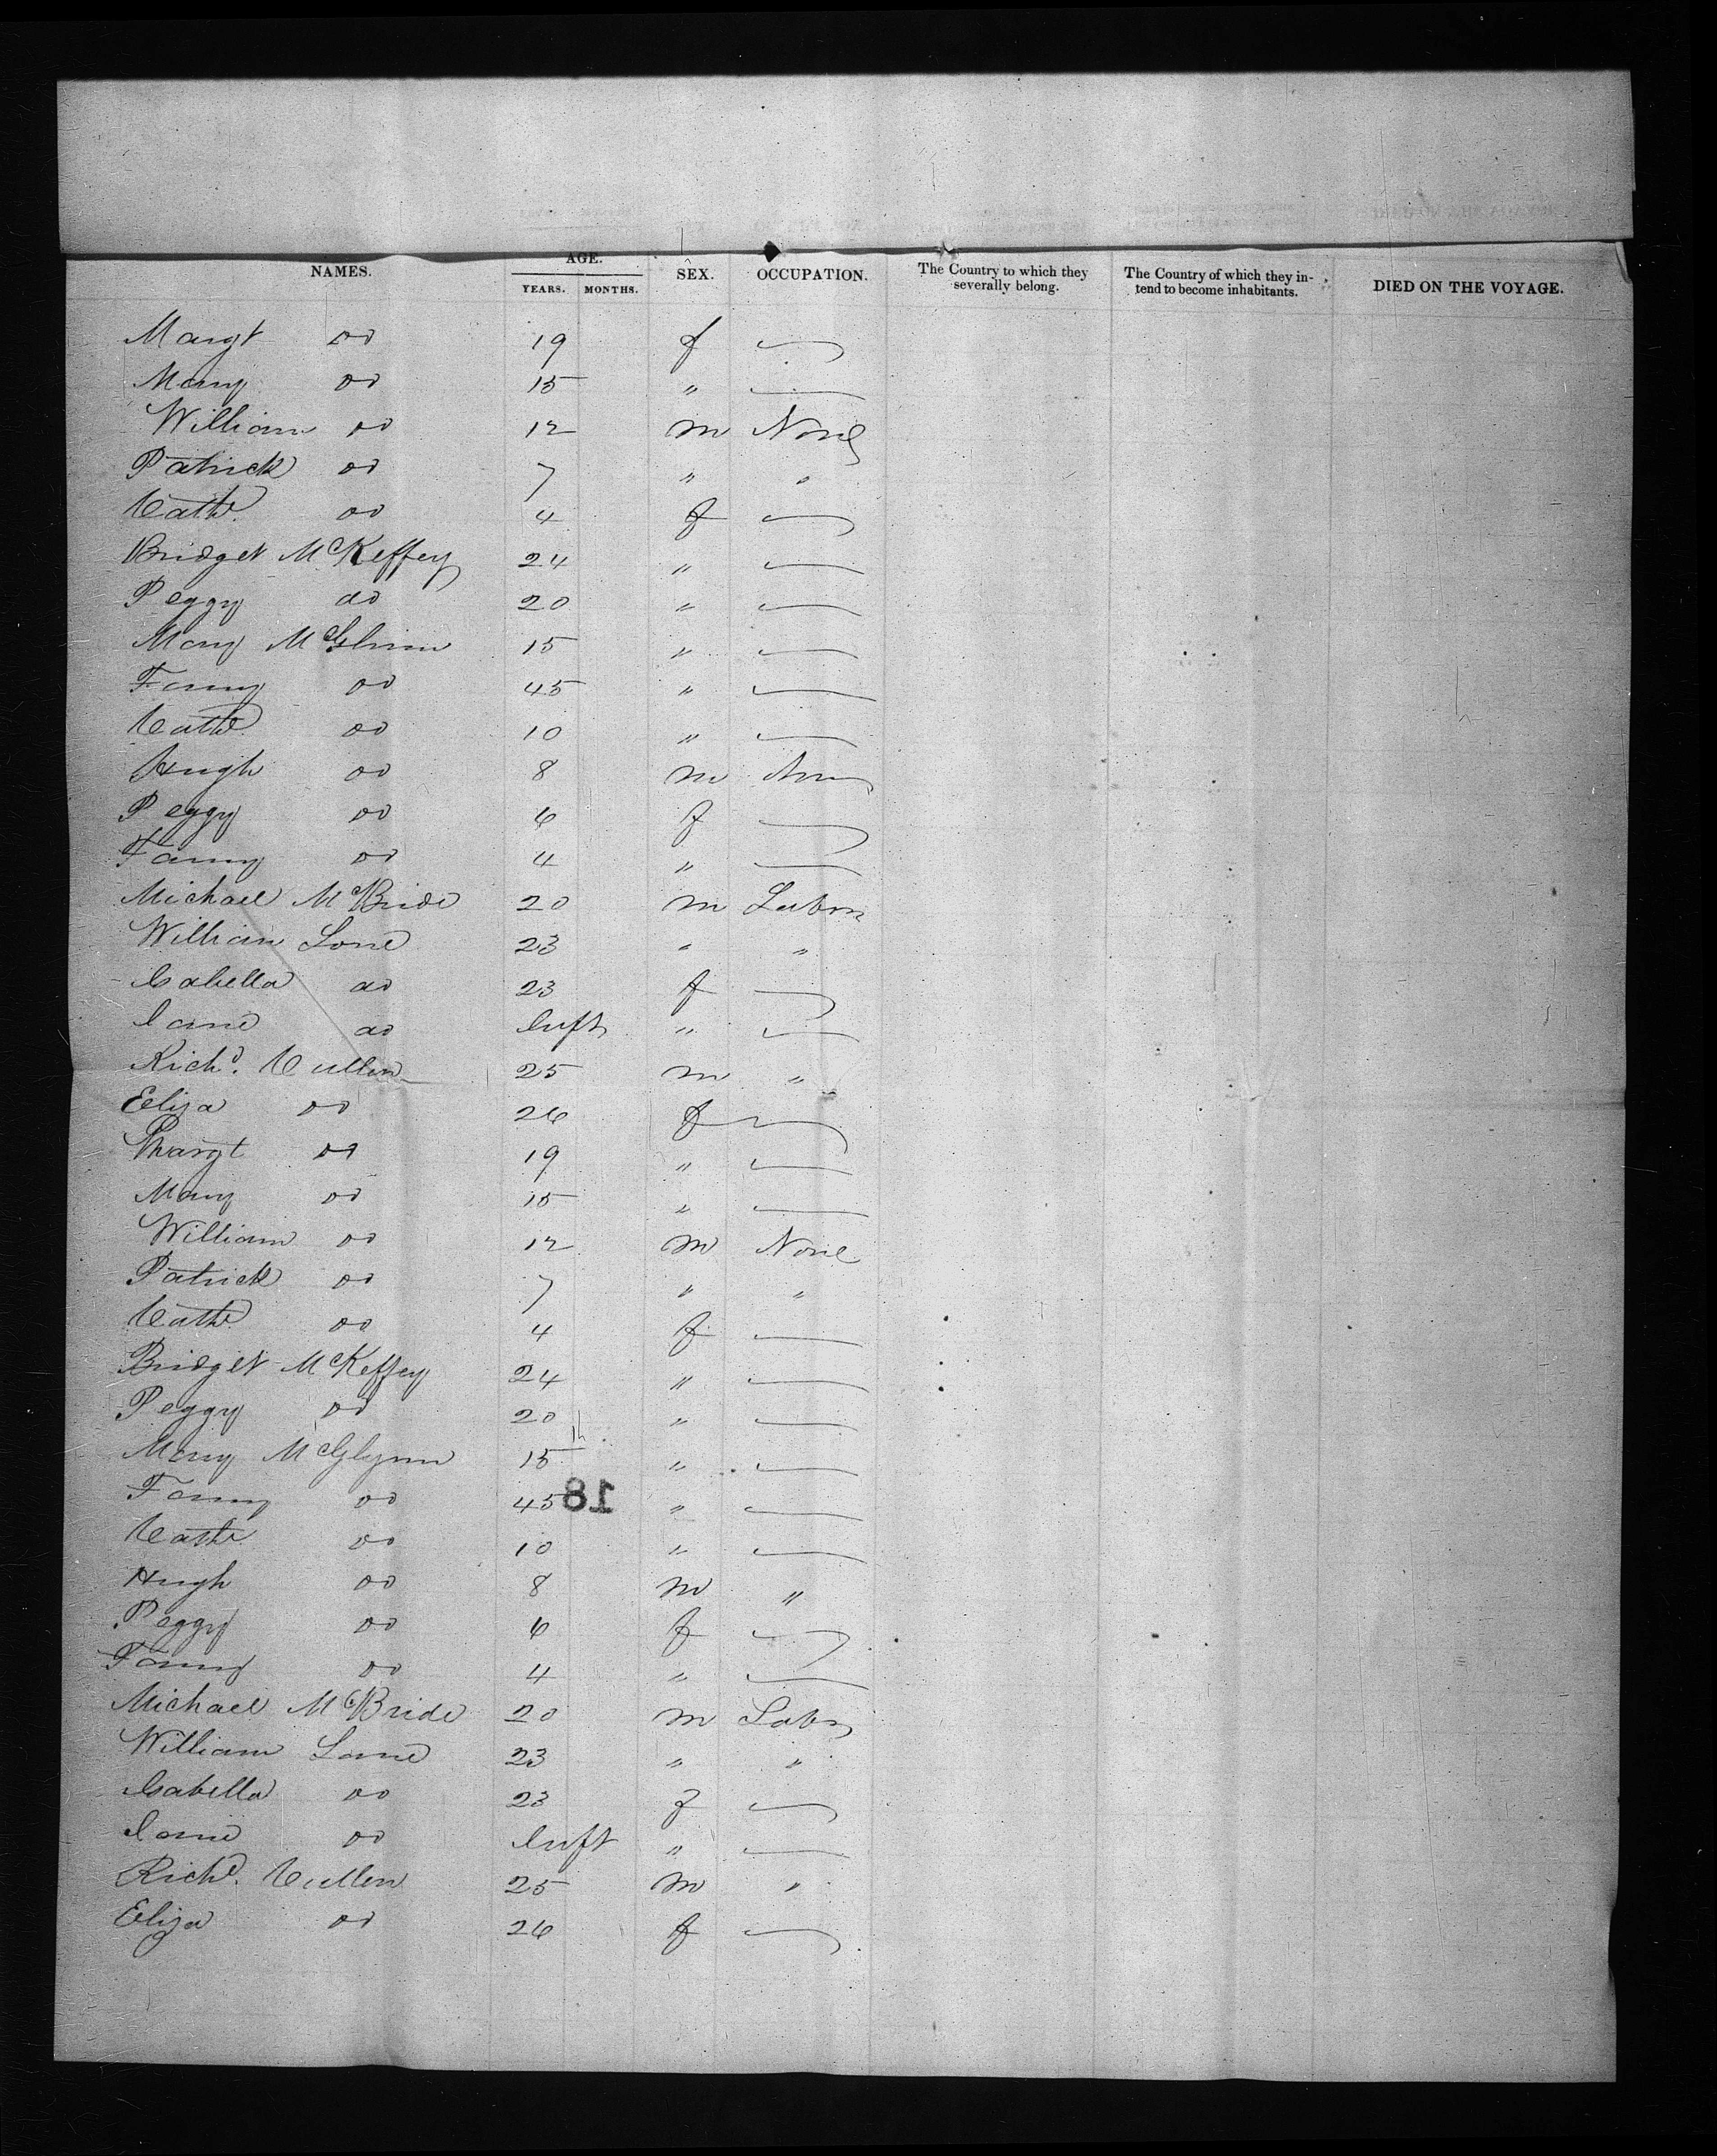 NAMES. AGE. YEARS. MONTHS. SEX. OCCUPATION. The Country to which they severally belong. The Country of which they intend to become inhabitants. DIED ON THE VOYAGE.
Margt do 19 f
Mary do 15 "
William do 12 m None
Patrick do 7 " "
Cathe do 4 f
Bridget McKeffey 24 "
Peggy do 20 "
Mary McGlinn 15 "
Fanny do 45 "
Cathe do 10 "
Hugh do 8 m None
Peggy do 6 f
Fanny do 4 "
Michael McBride 20 m Labor
William Lane 23 " "
Isabella do 23 f
Jane do Inft "
Richd. Cullen 25 m "
Eliza do 26 f
Margt do 19 "
Mary do 15 "
William do 12 m None
Patrick do 7 " "
Cathe do 4 f
Bridget McKeffey 24 "
Peggy do 20 "
Mary McGlynn 15 "
Fanny do 45 "
18
Cathe do 10 "
Hugh do 8 m "
Peggy do 6 f
Fanny do 4 "
Michael McBride 20 m Labor
William Lane 23 " "
Isabella do 23 f
Jane do Inft "
Richd. Cullen 25 m "
Eliza do 26 f